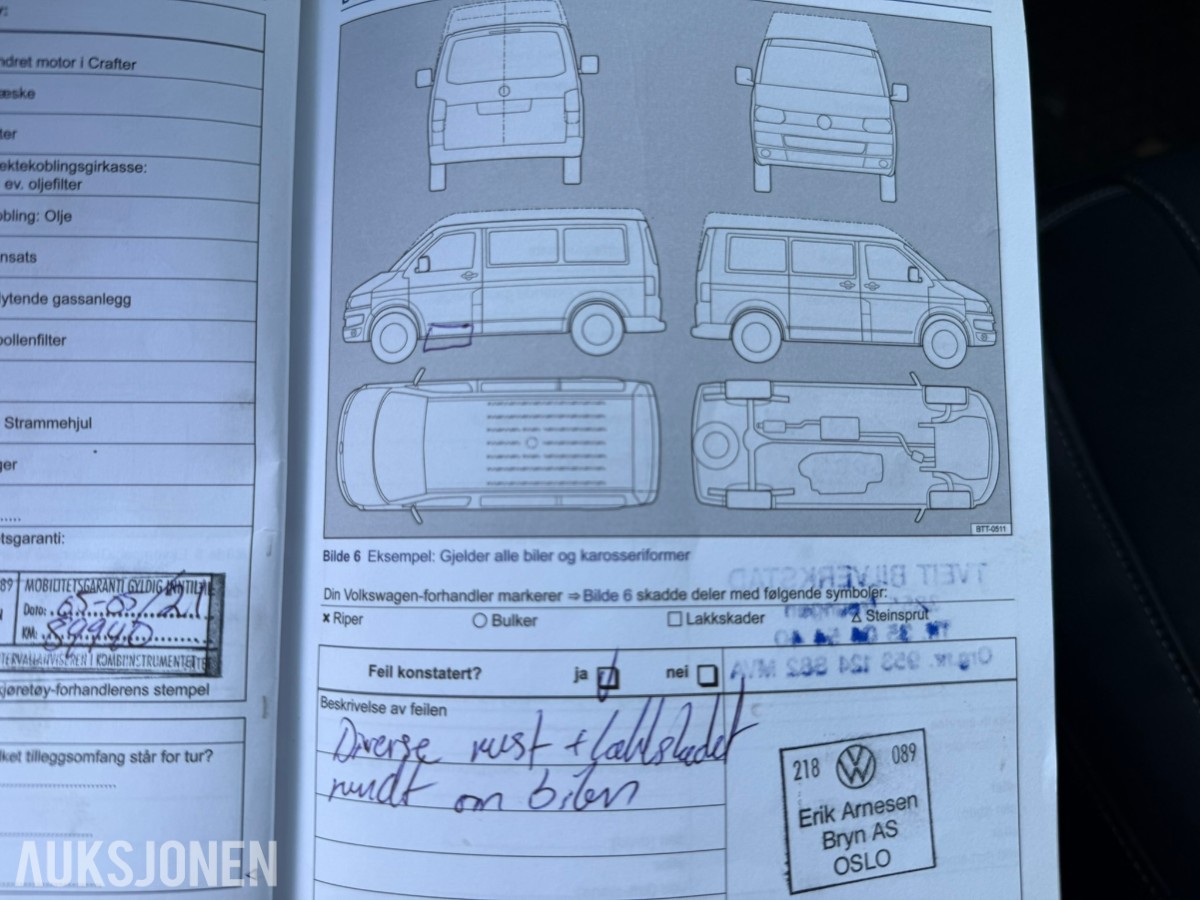 r:
ndret motor i Crafter
æske
ter
ektekoblingsgirkasse:
ev. oljefilter
obling: Olje
nsats
lytende gassanlegg
pollenfilter
Strammehjul
ger
.....
etsgaranti:
89 MOBILITETSGARANTI GYLDIG INNTIL
Dato:
KM: 89940
TERVALLANVISEREN I KOMBIINSTRUMENTET
kjøretøy-forhandlerens stempel
lket tilleggsomfang står for tur?
BTT-0511
Bilde 6 Eksempel: Gjelder alle biler og karosseriformer
TVEIT BILVERKSTAD
Din Volkswagen-forhandler markerer ⇒ Bilde 6 skadde deler med følgende symboler:
× Riper ○ Bulker □ Lakkskader △ Steinsprut
Org.nr. 953 124 882 MVA
Feil konstatert? ja nei
Beskrivelse av feilen
Diverse rust + lakkskader
rundt om bilen
218 089
Erik Arnesen
Bryn AS
OSLO
AUKSJONEN